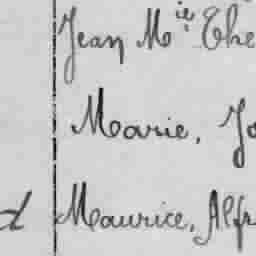 Jean Mie The
Marie, Jo
d Maurice, Alfr